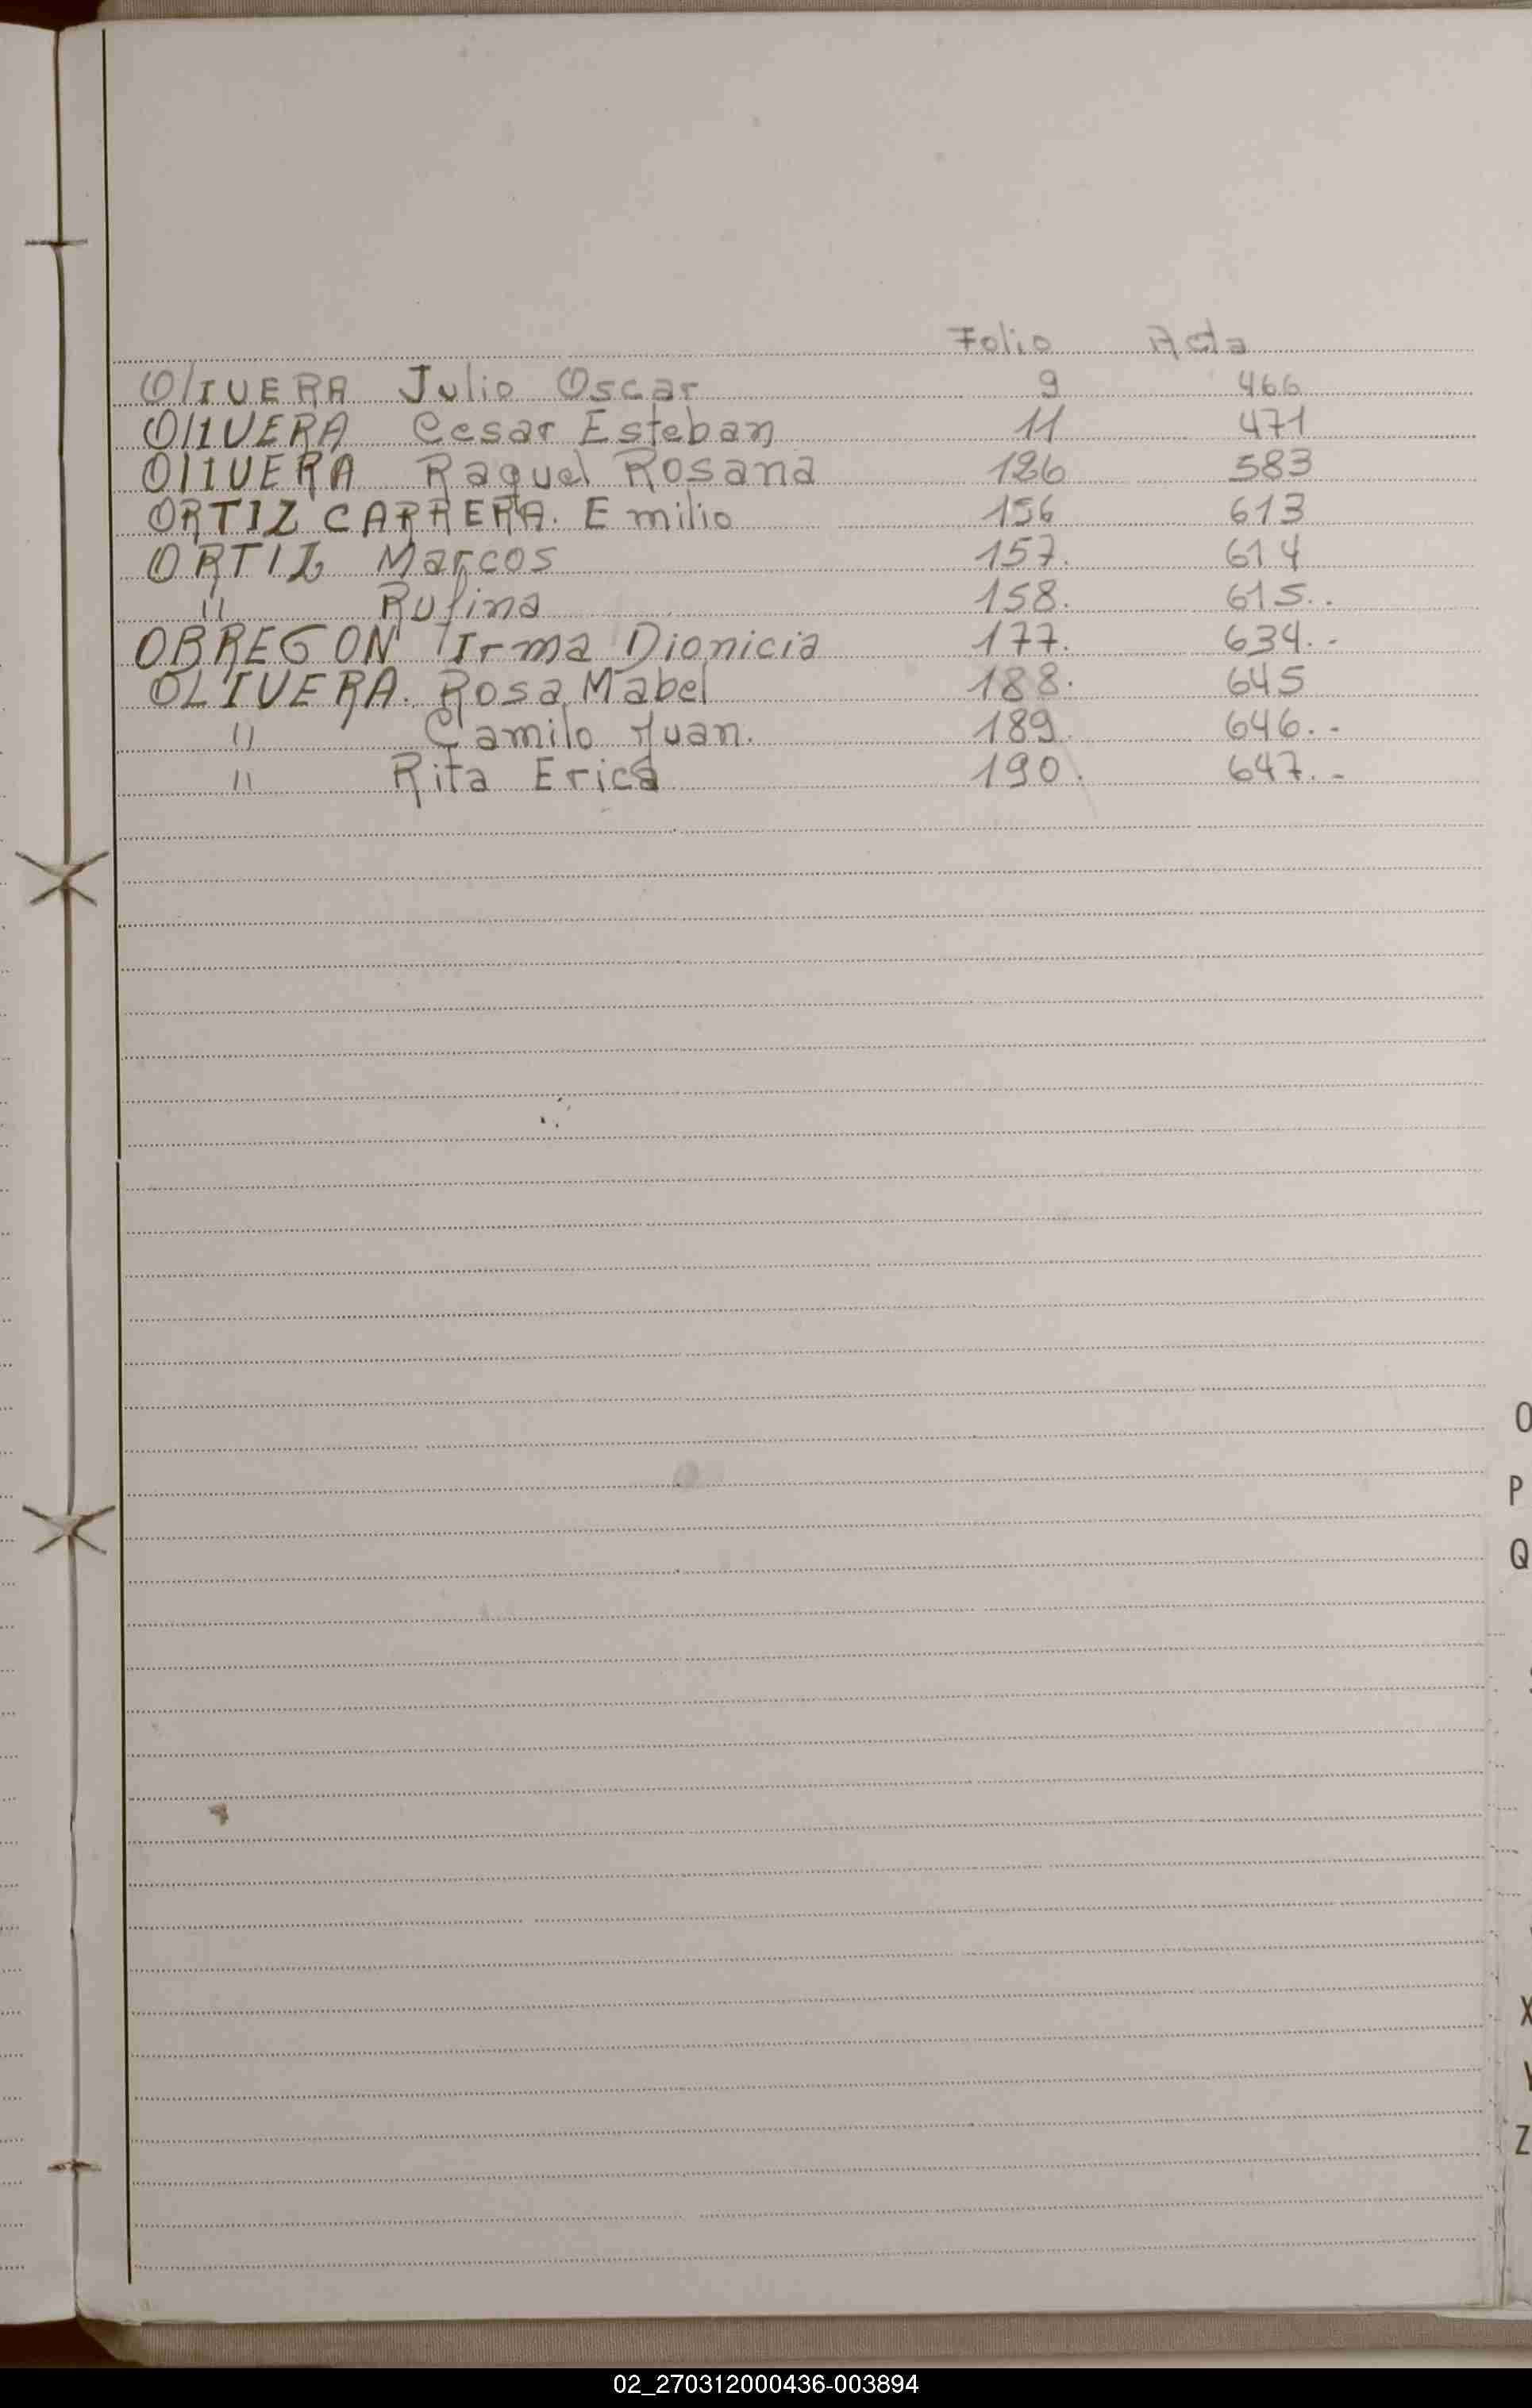 Folio Acta
OlIVERA Julio Oscar 9 466
OlIVERA Cesar Esteban 11 471
OlIVERA Raquel Rosana 126 583
ORTIZ CARRERA. Emilio 156 613
ORTIZ Marcos 157. 614
" Rufina 158. 615..
OBREGON Irma Dionicia 177. 634.-
OLIVERA. Rosa Mabel 188. 645
" Camilo Juan. 189. 646.-
" Rita Erica 190. 647.-
O
P
Q
X
Z
02_270312000436-003894